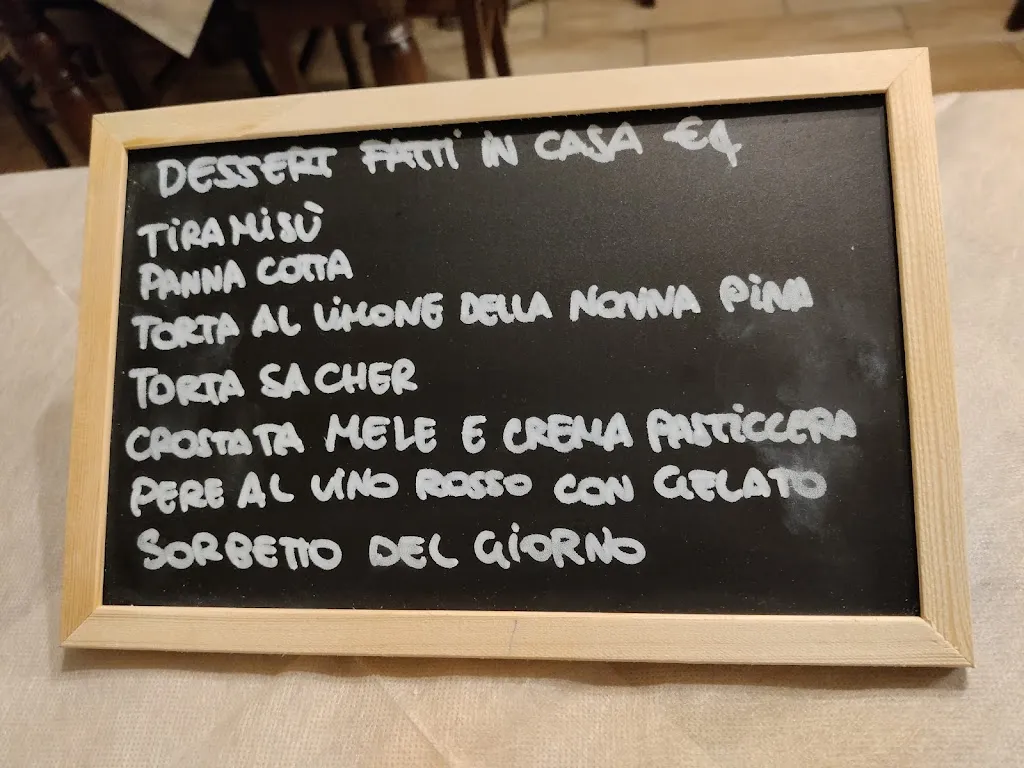 DESSERT FATTI IN CASA €4
TIRAMISÙ
PANNA COTTA
TORTA AL LIMONE DELLA NONNA PINA
TORTA SACHER
CROSTATA MELE E CREMA PASTICCERA
PERE AL VINO ROSSO CON GELATO
SORBETTO DEL GIORNO